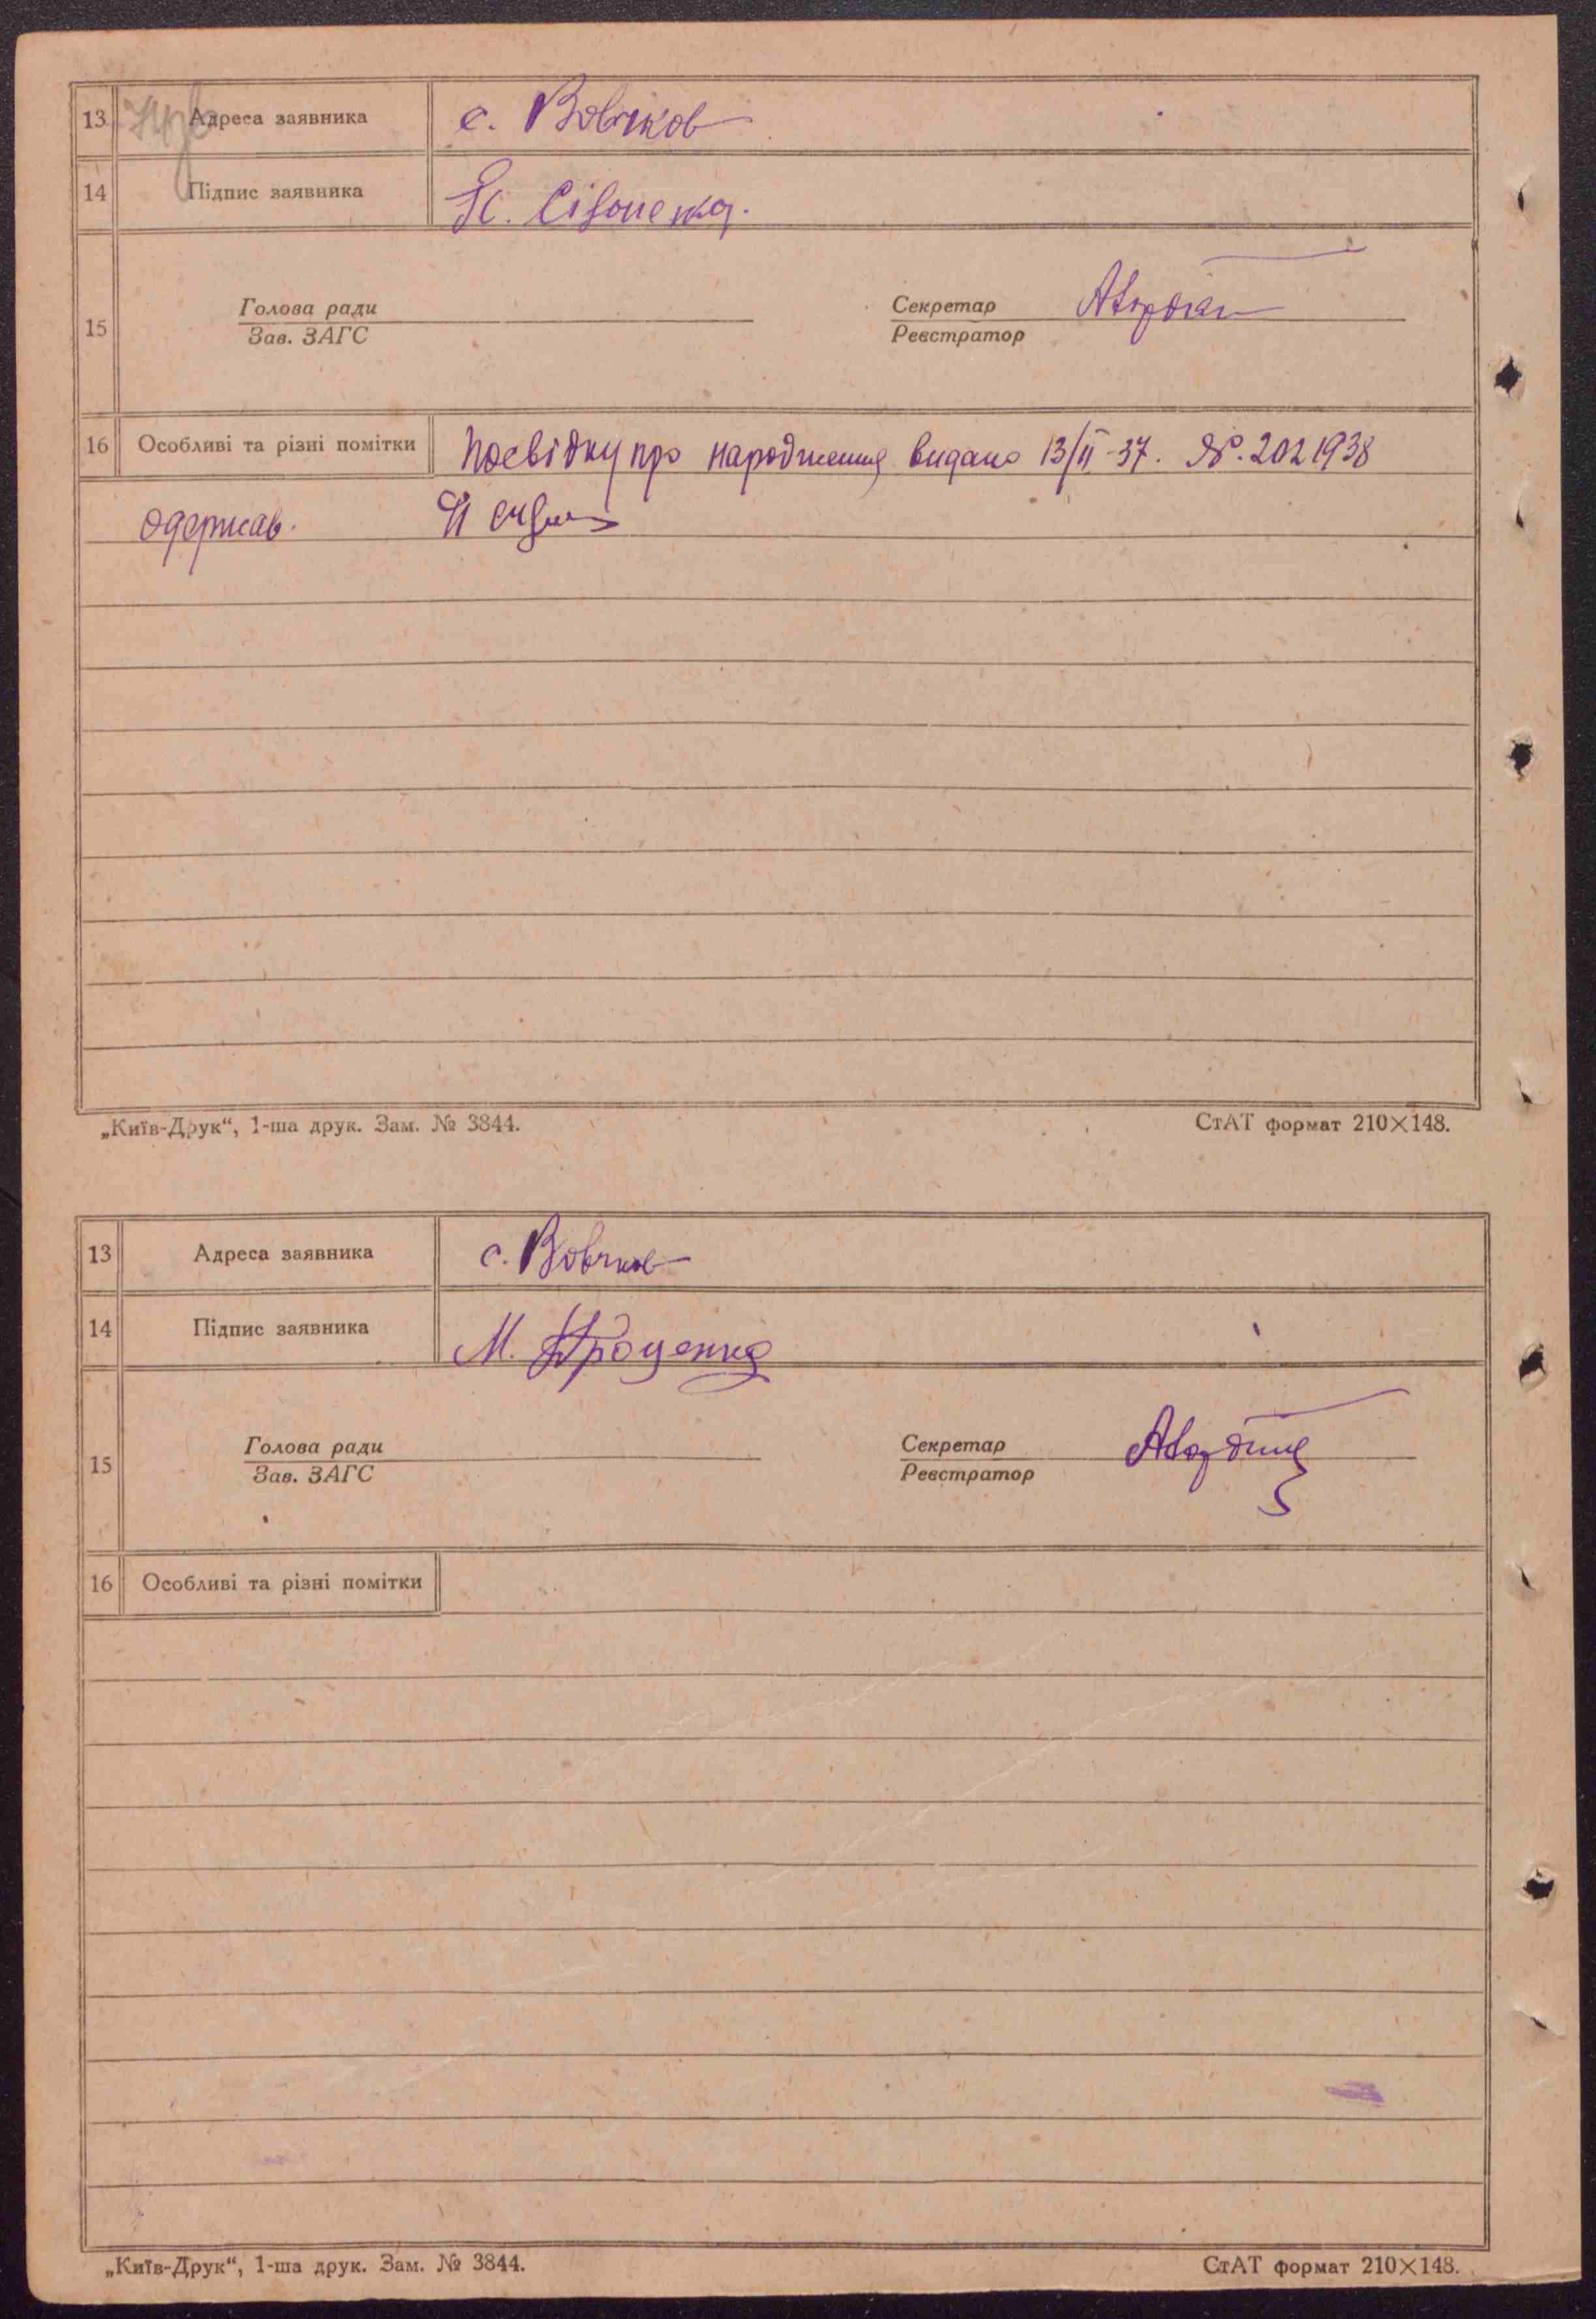 13 Адреса заявника с. Вовчков
14 Підпис заявника
15 Голова ради Секретар
Зав. ЗАГС Реєстратор
16 Особливі та різні помітки Посвідку про народження видано 13/II-37. №. 2021938
одержав.
„Київ-Друк“, 1-ша друк. Зам. № 3844. СтАТ формат 210×148.
13 Адреса заявника с. Вовчков
14 Підпис заявника М. Проценко
15 Голова ради Секретар
Зав. ЗАГС Реєстратор
16 Особливі та різні помітки
„Київ-Друк“, 1-ша друк. Зам. № 3844. СтАТ формат 210×148.